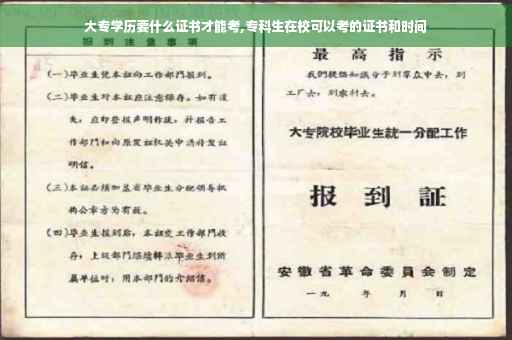 大专学历要什么证书才能考,专科生在校可以考的证书和时间
报到注意事项
(一)毕业生凭本证向工作部门报到。
(二)毕业生对本证应注意保存。如有遗
失,应即登报声明作废,并报告工
作部门和向原发证机关申请补发证
明信。
(三)本证必须加盖省毕业生分配领导机
构公章方为有效。
(四)毕业生报到后,本证交工作部门收
存;上级部门
毕业生到所
属单位时,用本部门的介绍信。
最高指示
我们提倡知识分子到群众中去,到
工厂去,到农村去。
大专院校毕业生统一分配工作
报到证
安徽省革命委员会制定
一九 年 月 日